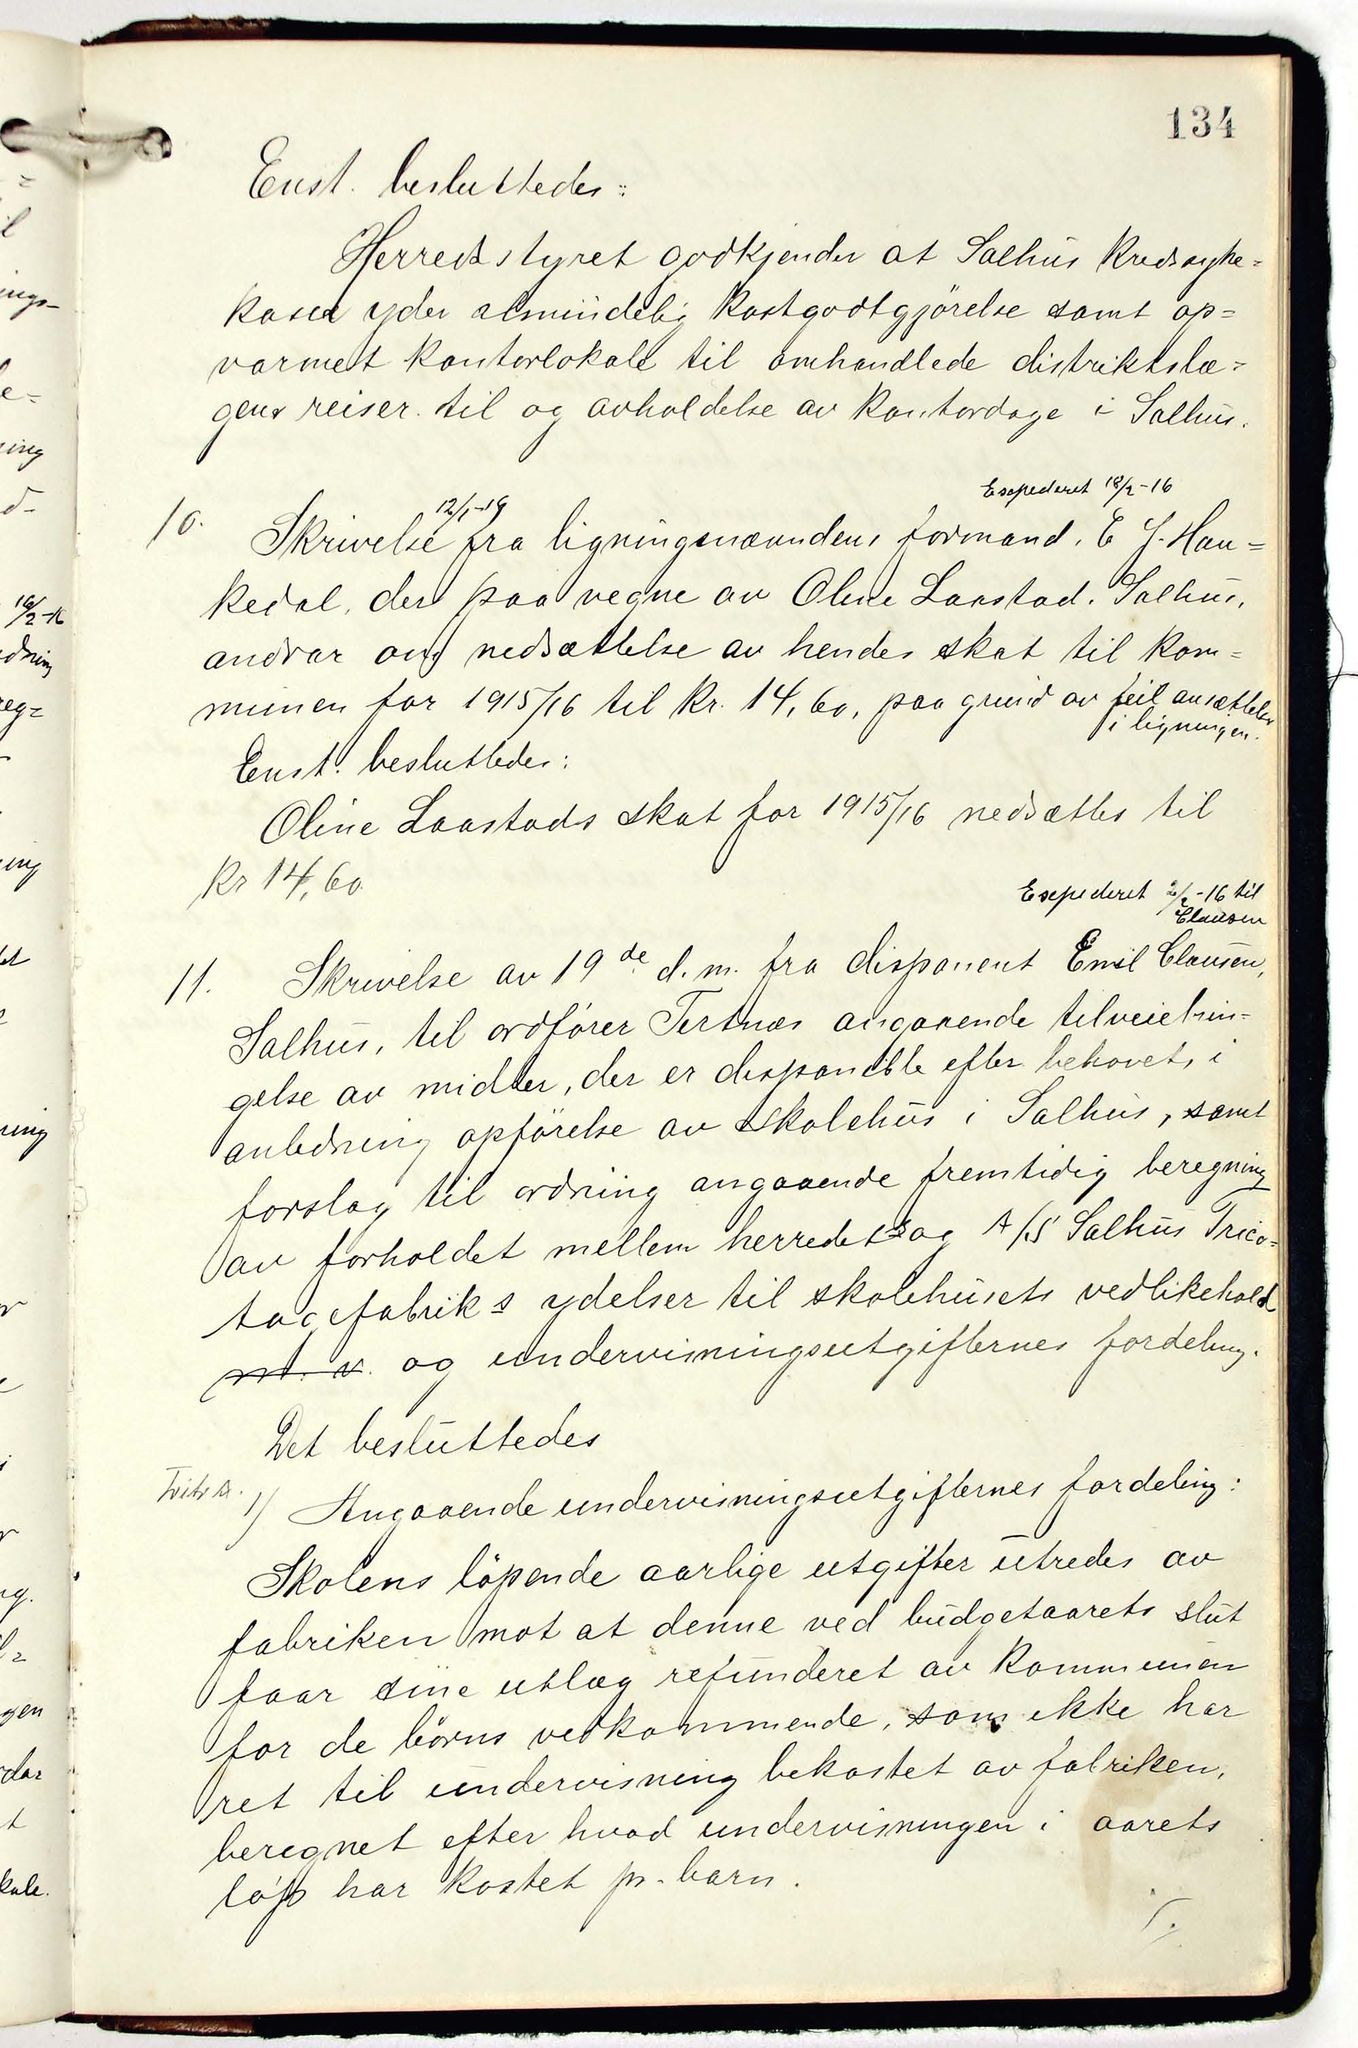 134
Enst. besluttedes:
Herredsstyret godkjender at Salhus Kredssyke=
kasse yder almindelig kostgodtgjörelse samt op=
varmet kontorlokale til omhandlede distriktslæ=
gens reiser til og avholdelse av kontordage i Salhus.
Exepederet 18/2-16
12/1-19
10. Skrivelse fra ligningsnævndens formand, E J. Hau=
kedal, der paa vegne av Oline Laastad, Salhus,
andrar om nedsættelse av hendes skat til kom=
munen for 1915/16 til kr. 14,60, paa grund av feil ansættelse
i ligningen.
Enst. besluttedes:
Oline Laastads skat for 1915/16 nedsættes til
kr 14,60.
Exepederet 2/2-16 til
Clausen
11. Skrivelse av 19de d.m. fra disponent Emil Clausen,
Salhus, til ordfører Tertnæs angaaende tilveiebrin=
gelse av midler, der er disponible efter behovet, i
anledning opförelse av skolehus i Salhus, samt
forslag til ordning angaaende fremtidig beregning
av forholdet mellem herredets og A/S Salhus Trico=
tagefabriks ydelser til skolehusets vedlikehold
m. v. og undervisningsutgifternes fordeling.
Det besluttedes
1) Angaaende undervisningsutgifternes fordeling:
Skolens löpende aarlige utgifter utredes av
fabriken mot at denne ved budgetaarets slut
faar sine utlæg refunderet av kommunen
for de börns vedkommende, som ikke har
ret til undervisning bekostet av fabriken,
beregnet efter hvad undervisningen i aarets
löp har kostet pr. barn.